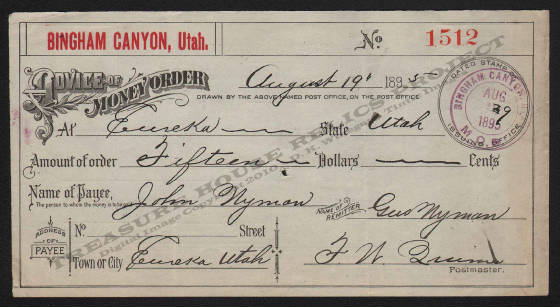 BINGHAM CANYON, Utah. No. 1512
ADVICE OF MONEY ORDER
August 19" 1895
DRAWN BY THE ABOVE NAMED POST OFFICE, ON THE POST OFFICE
DATED STAMP
BINGHAM CANYON
AUG
1895
M.O.B.
ISSUING OFFICE
At Eureka State Utah
Amount of order Fifteen Dollars Cents
Name of Payee, John Nyman
The person to whom the money is to be paid
NAME OF REMITTER Geo Nyman
ADDRESS OF PAYEE
No Street
Town or City Eureka Utah
F. W. Quinn
Postmaster.
TREASURE HOUSE RELICS PROJECT